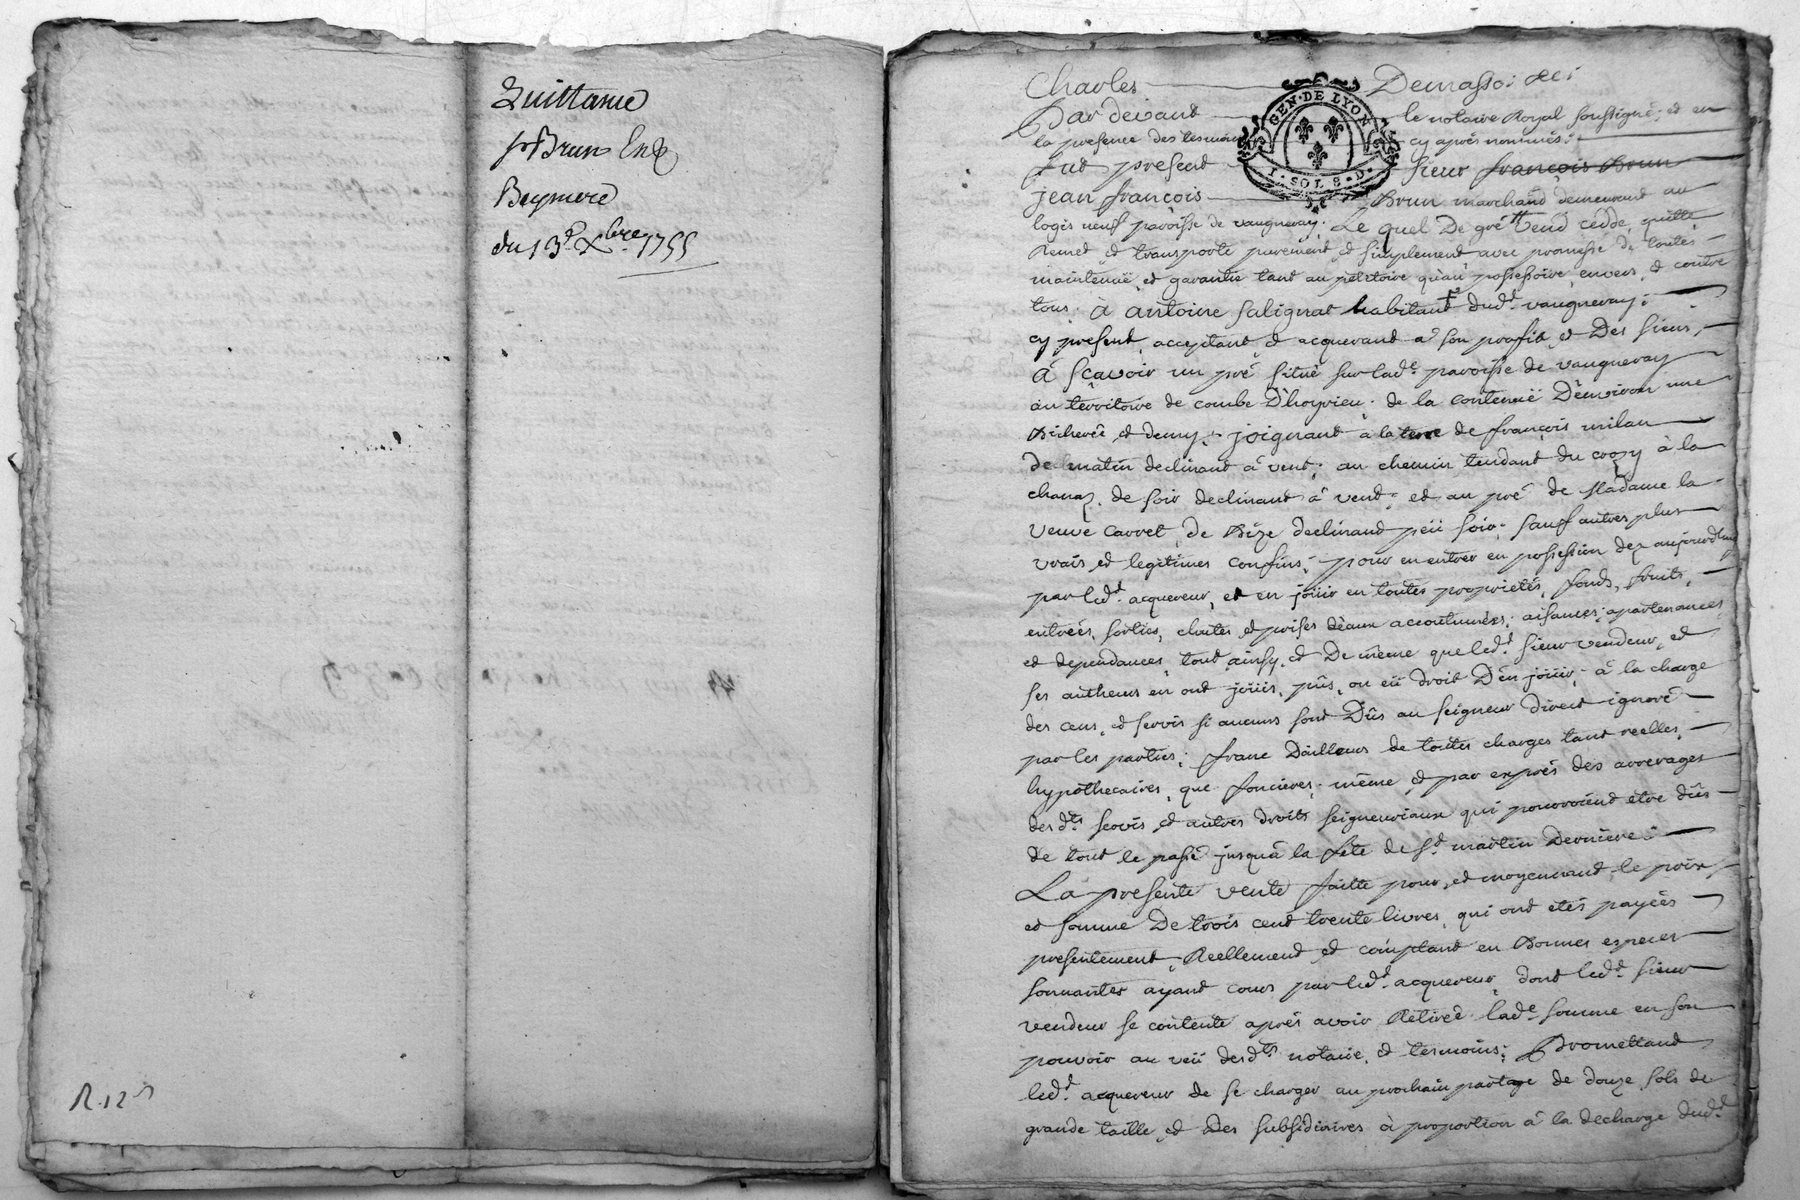 Quittance
pr Brun Et
Beymere
du 13e Xbre 1755
R. 12 s
Charles Demassoi
GEN. DE LYON
I. SOL 8. D.
Par devant le notaire Royal soussigné; et en
la presence des tesmoins cy aprés nommés:
fut present sieur françois Brun
jean françois Brun marchand demeurant au
logis neuf paroisse de vaugneray. Le quel De gré vend cédde, quitte
Remet et transporte purement et simplement avec promesse de toutes
maintenüe, et garantie tant au petitoire qu'au possessoire, envers, et contre
tous. à antoine salignat habitant dudt. vaugneray:
cy present, acceptant et acquerant a son profit et Des siens,
A sçavoir un pré situé sur lade. paroisse de vaugneray
au territoire de combe D'hoyrieu. de la contenüe D'environ une
Bicherée et demy, joignant a la terre de françois milan
de matin declinant à vent; au chemin tendant du crozy à la
chanaz, de soir declinant à vent; et au pré de Madame la
veuve Carret, de Bize declinant peü soir. sauf autres plus
vrais et legitimes confins; pour en entrer en possession dez aujourdhuy
par ledt. acquereur, et en joüir en toutes proprietés, fonds, fruits,
entrées, sorties, chutes et prises d'eaux accoutumées; aisances; apartenances
et dependances, tout ainsy, et De même que ledt. sieur vendeur, et
ses autheurs en ont joüis, pûs, ou eü droit D'en joüir; à la charge
des cens, et servis si aucuns sont Dûs au seigneur direct ignoré
par les parties; franc D'ailleurs de toutes charges tant reelles,
hypothecaires, que foncieres; même, et par exprés des arrerages
des dts servis et autres droits seigneuriaux qui pourroient etre dûs
de tout le passé jusqu'à la fête de st. martin Derniere:
La presente vente faitte pour, et moyennant le prix,
et somme De trois cent trente livres, qui ont etés payées
presentement, Reellement et comptant en Bonnes especes
sonnantes ayant cours par ledt. acquereur, dont ledt. sieur
vendeur se contente aprés avoir Retiree lade. somme en son
pouvoir au veü desdts notaire, et tesmoins; Promettant
ledt. acquereur de se charger au prochain partage de douze sols de
grande taille, et Des subsidiaires à proportion à la decharge dudt.